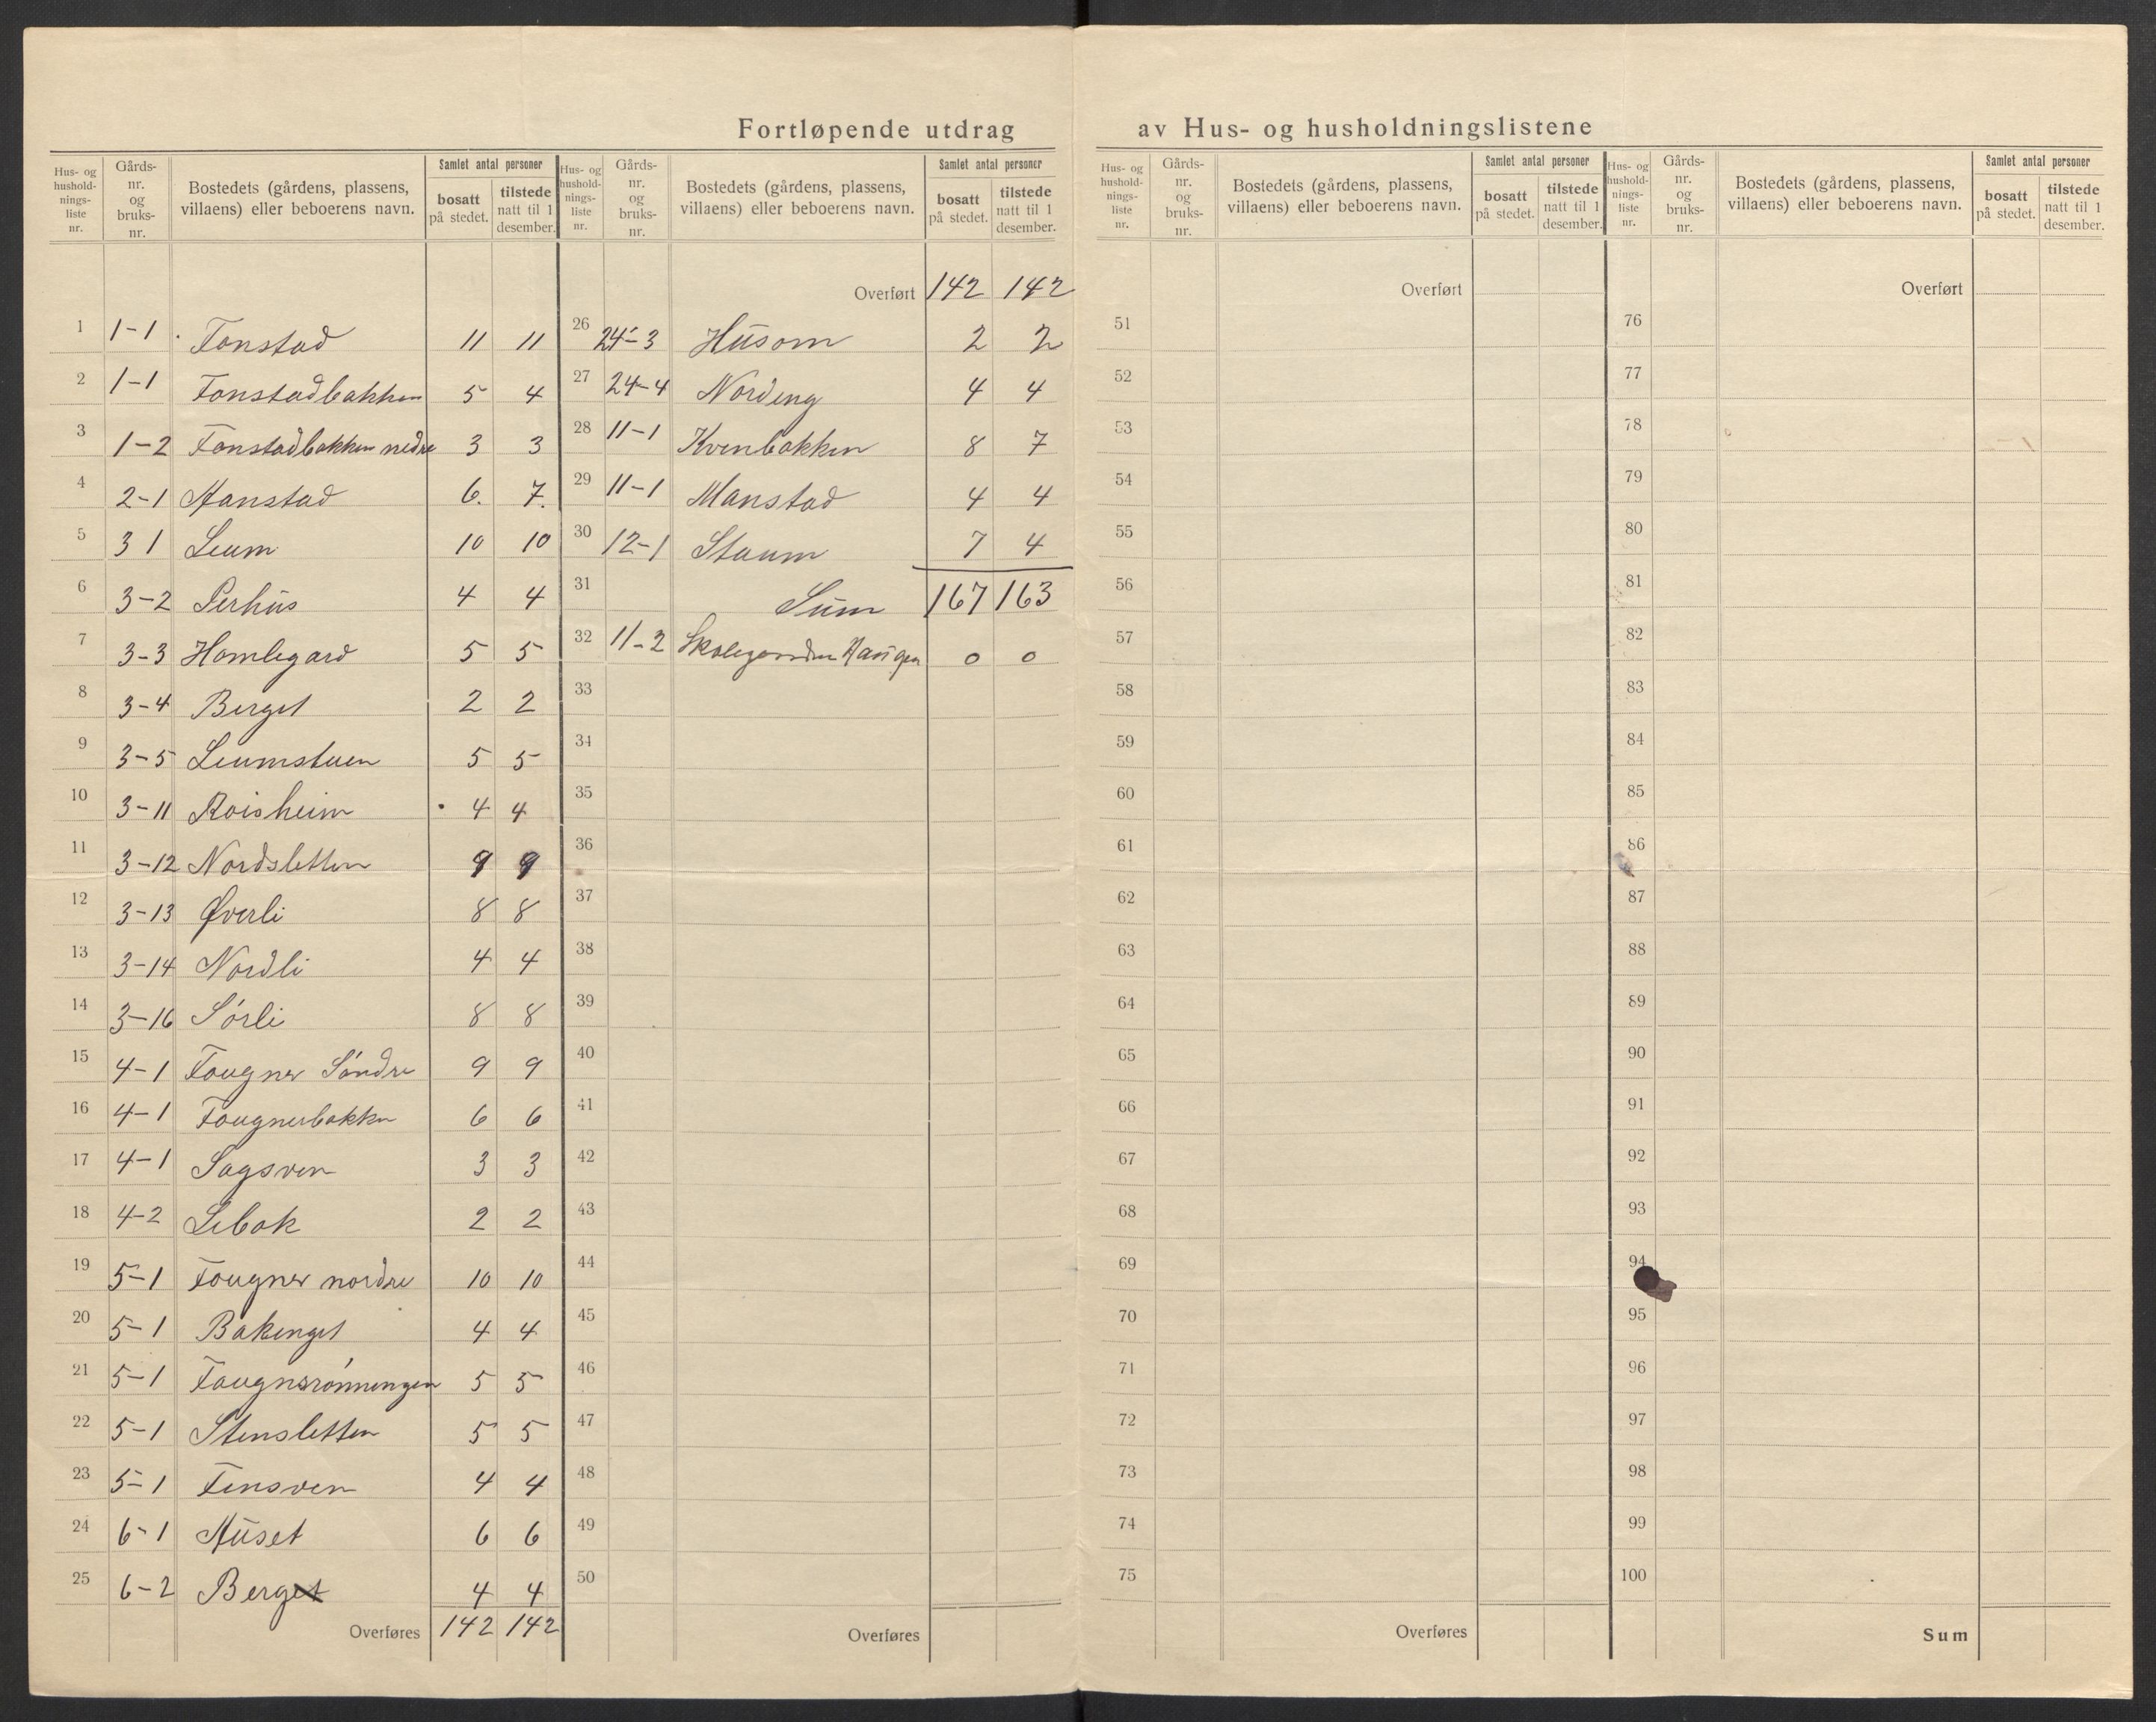 Fortløpende utdrag av Hus- og husholdningslistene
Hus- og hushold-nings-liste nr. Gårds-nr. og bruks-nr. Bostedets (gårdens, plassens, villaens) eller beboerens navn. Samlet antal personer bosatt på stedet. tilstede natt til 1 desember.
1 1-1 Fonstad 11 11
2 1-1 Fonstadbakken 5 4
3 1-2 Fonstadbakken nedre 3 3
4 2-1 Hanstad 6. 7.
5 3 1 Leum 10 10
6 3-2 Perhus 4 4
7 3-3 Homlegard 5 5
8 3-4 Berget 2 2
9 3-5 Leumstuen 5 5
10 3-11 Roisheim 4 4
11 3-12 Nordsletten 9 9
12 3-13 Øverli 8 8
13 3-14 Nordli 4 4
14 3-16 Sørli 8 8
15 4-1 Fougner Söndre 9 9
16 4-1 Fougnerbakken 6 6
17 4-1 Sagsven 3 3
18 4-2 Libak 2 2
19 5-1 Fougner nordre 10 10
20 5-1 Bakenget 4 4
21 5-1 Fougnsrønningen 5 5
22 5-1 Stensletten 5 5
23 5-1 Finsven 4 4
24 6-1 Huset 6 6
25 6-2 Berget 4 4
Overføres 142 142
Hus- og hushold-nings-liste nr. Gårds-nr. og bruks-nr. Bostedets (gårdens, plassens, villaens) eller beboerens navn. Samlet antal personer bosatt på stedet. tilstede natt til 1 desember.
Overført 142 142
26 24-3 Husom 2 2
27 24-4 Nordeng 4 4
28 11-1 Kvenbakken 8 7
29 11-1 Manstad 4 4
30 12-1 Staum 7 4
31 Sum 167 163
32 11-2 Skolegarden Haugen 0 0
33
34
35
36
37
38
39
40
41
42
43
44
45
46
47
48
49
50
Overføres
Hus- og hushold-nings-liste nr. Gårds-nr. og bruks-nr. Bostedets (gårdens, plassens, villaens) eller beboerens navn. Samlet antal personer bosatt på stedet. tilstede natt til 1 desember.
Overført
51
52
53
54
55
56
57
58
59
60
61
62
63
64
65
66
67
68
69
70
71
72
73
74
75
Overføres
Hus- og hushold-nings-liste nr. Gårds-nr. og bruks-nr. Bostedets (gårdens, plassens, villaens) eller beboerens navn. Samlet antal personer bosatt på stedet. tilstede natt til 1 desember.
Overført
76
77
78
79
80
81
82
83
84
85
86
87
88
89
90
91
92
93
94
95
96
97
98
99
100
Sum